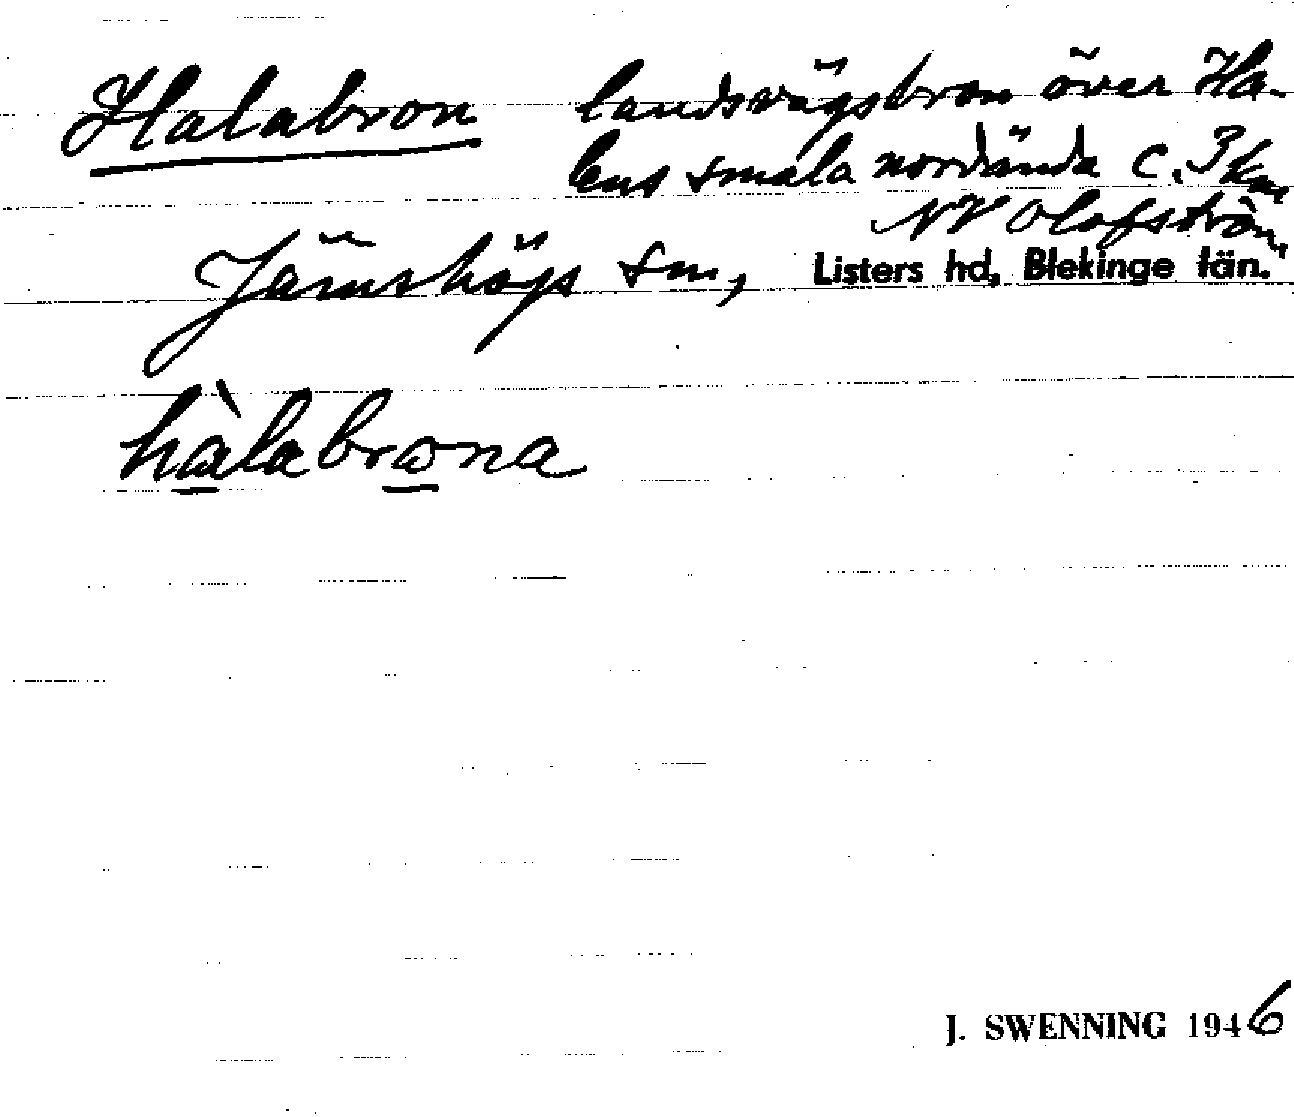 Halabron landsvägsbron över Ha-
lens smala nordända c. 3 km
NV Olofström
Jämshögs sn, Listers hd, Blekinge län.
hàlabrona
J. SWENNING 1946